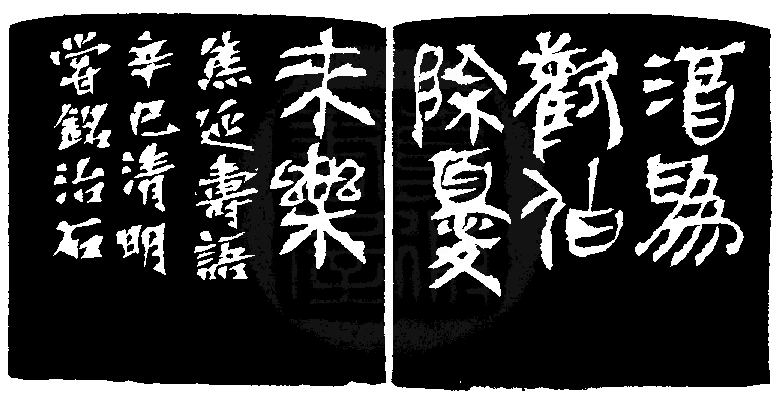 酒為
歡伯
除憂
来樂
焦延壽語
辛巳清明
嘗銘治石